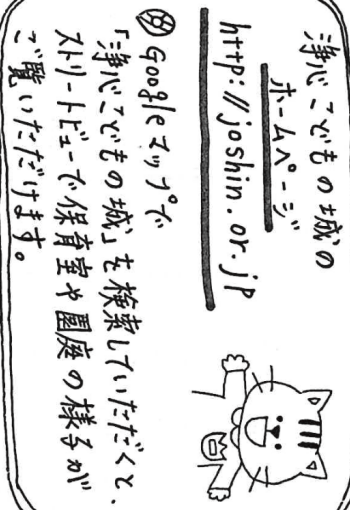 浄心こどもの城の
ホームページ
http://joshin.or.jp
Googleマップで
「浄心こどもの城」を検索していただくと、
ストリートビューで保育室や園庭の様子が
ご覧いただけます。